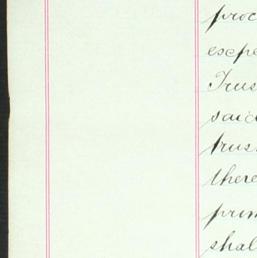 proc
expe
Trus
said
trus
there
prem
shal